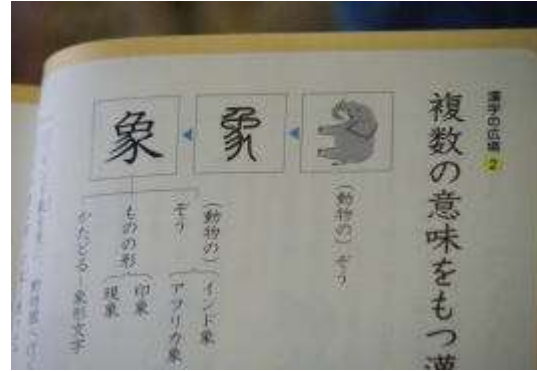 漢字の広場 2
複数の意味をもつ漢
(動物の)ぞう
象
(動物の)
ぞう
インド象
アフリカ象
ものの形
印象
現象
かたどる―象形文字